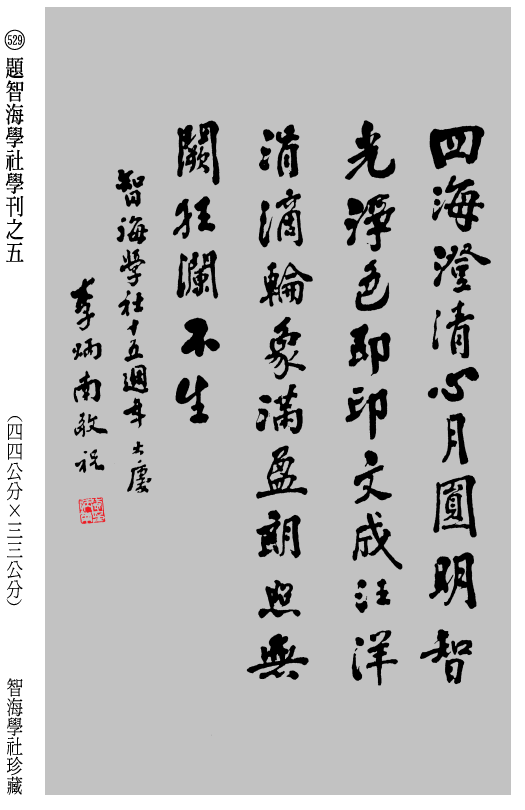 四海澄清心月圓明智
光淨色即印文成汪洋
涓滴輪象滿盈朗照無
闕狂瀾不生
智海學社十五週年大慶
李炳南敬祝
529 題智海學社學刊之五
(四四公分×三三公分)
智海學社珍藏